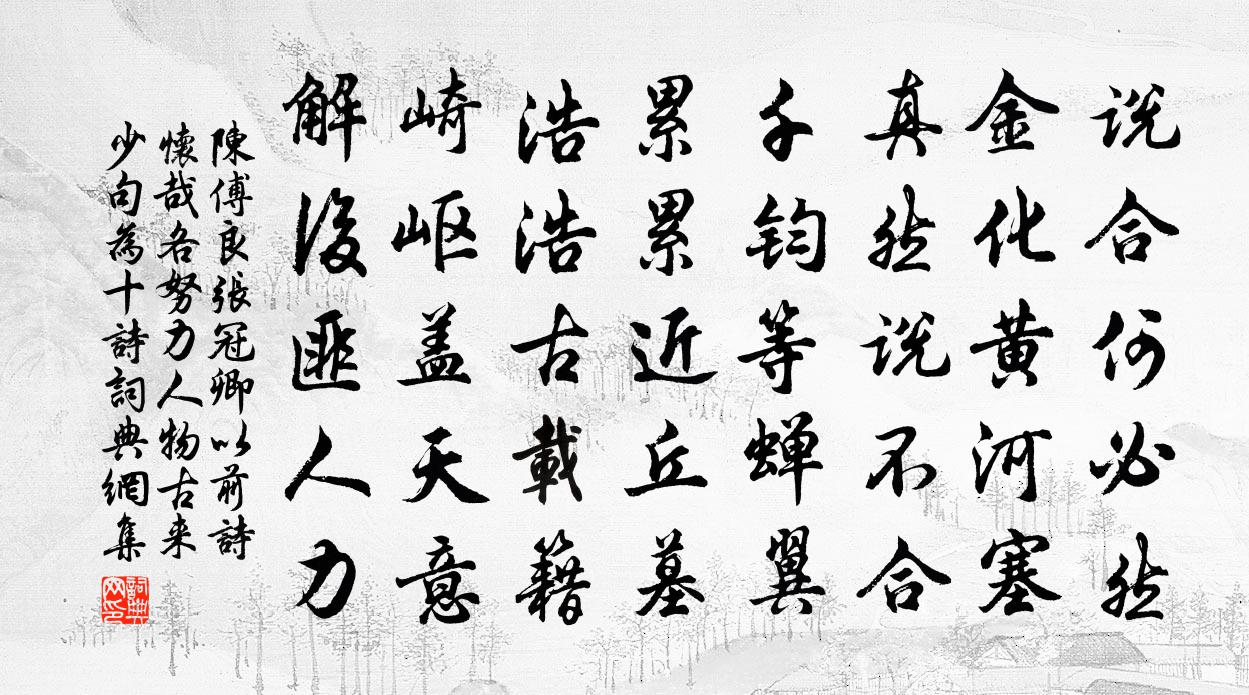 说合何必然
金化黄河塞
真然说不合
千钧等蝉翼
累累近丘墓
浩浩古載籍
崎岖盖天意
解後匪人力
陳傅良張冠卿以前詩
懷哉各努力人物古来
少句為十詩詞典網集